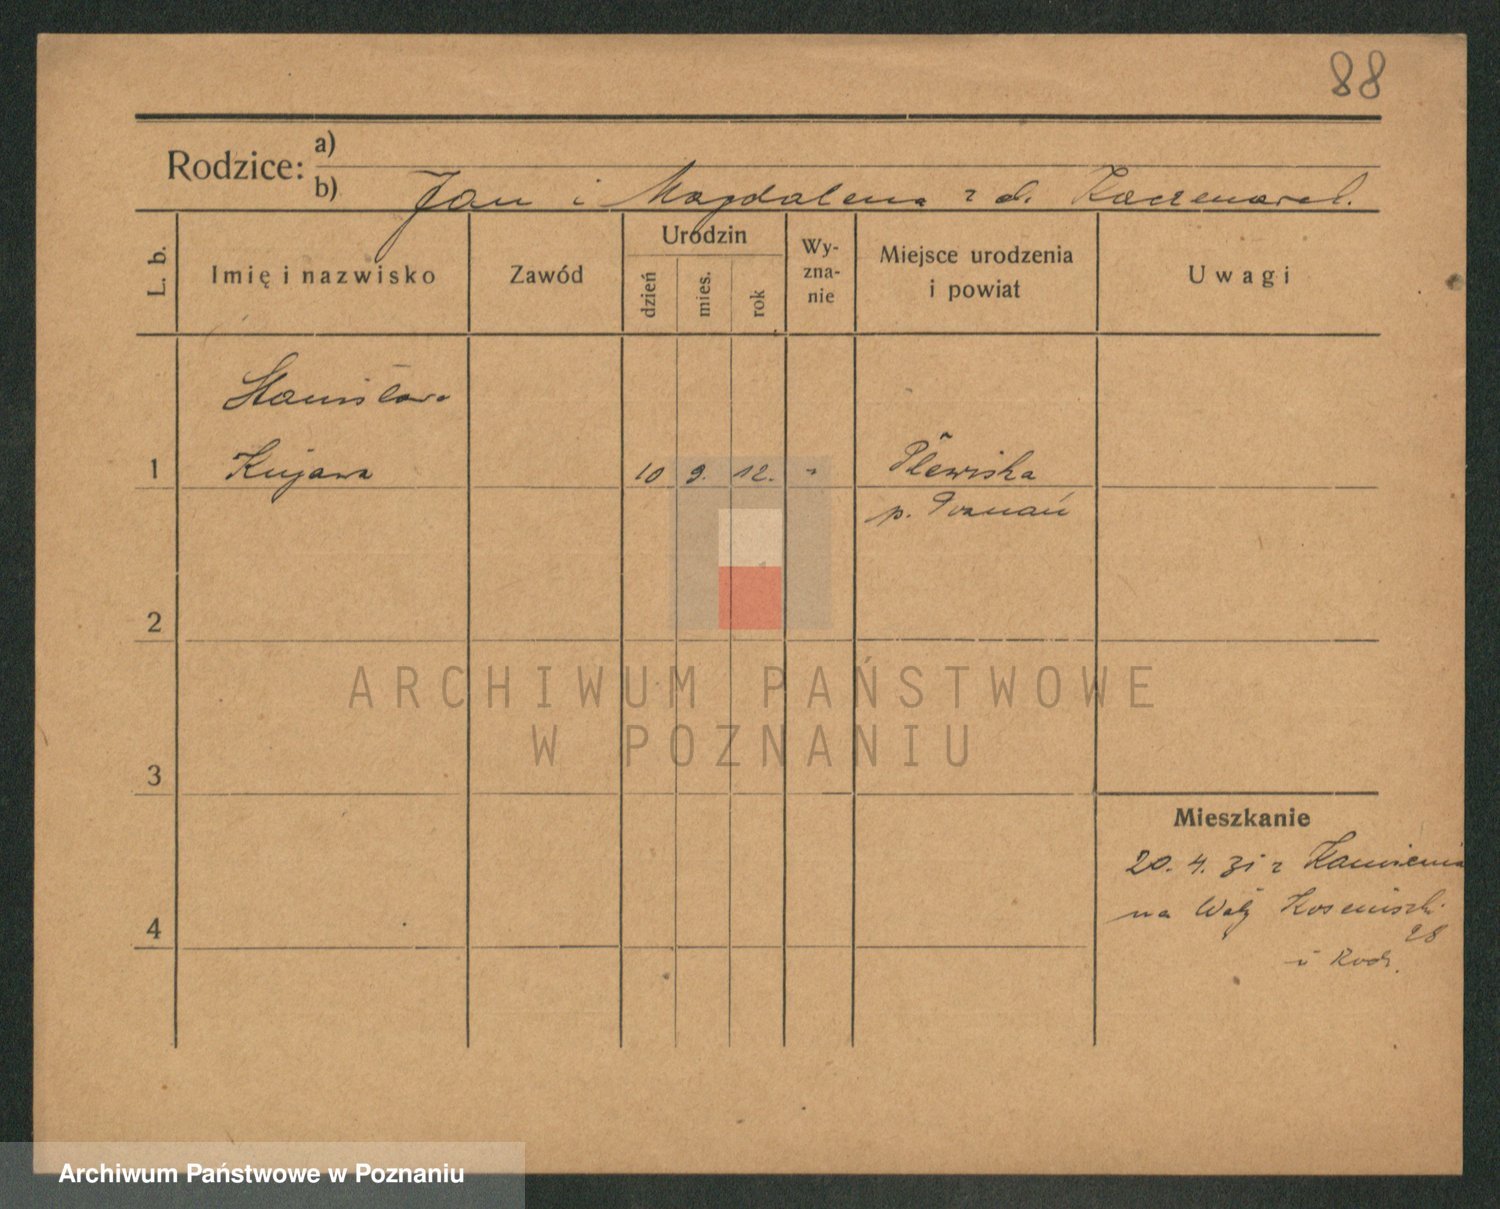 88
Rodzice: a)
b) Jan i Magdalena z d. Kaczmarek.
L. b.
Imię i nazwisko
Zawód
Urodzin
dzień
mies.
rok
Wy-
zna-
nie
Miejsce urodzenia
i powiat
Uwagi
Stanisława
1 Kujawa 10 9. 12. " Plewiska
p. Poznań
2
ARCHIWUM PAŃSTWOWE
W POZNANIU
3
Mieszkanie
20. 4. 31 z
na Wały
28
4
i Rodz.
Archiwum Państwowe w Poznaniu